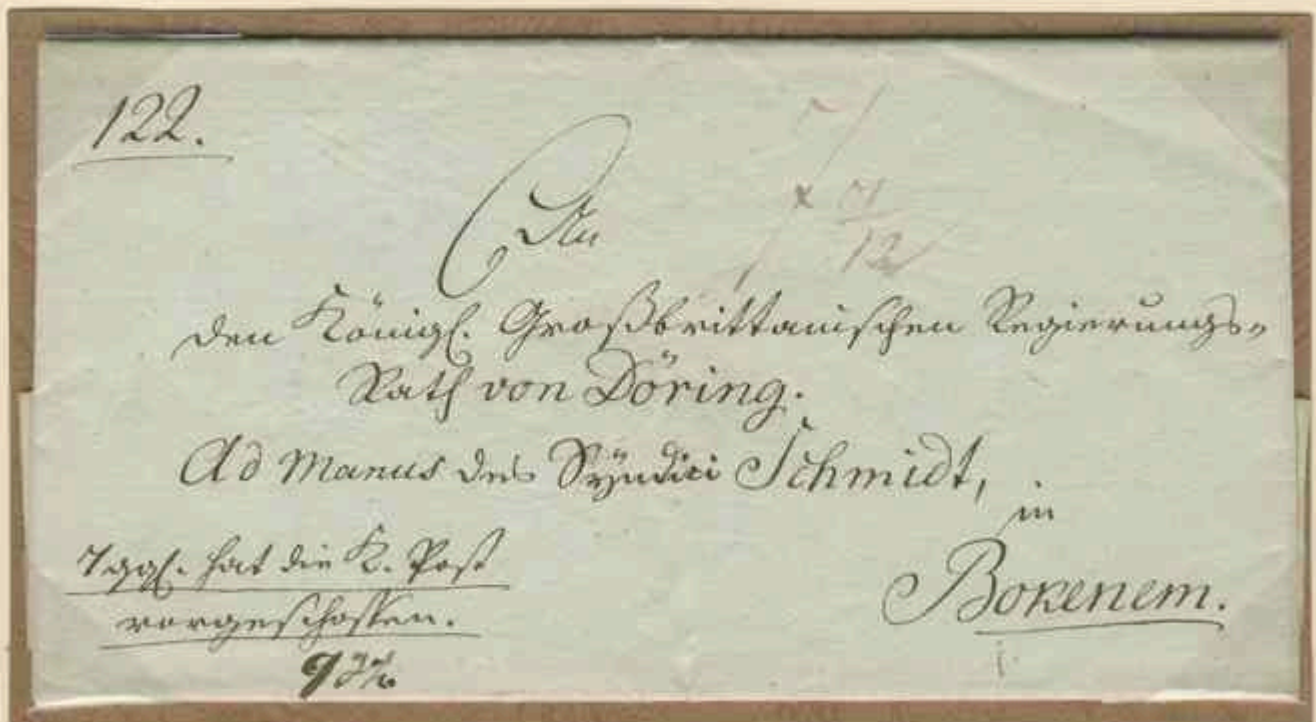 122.
An
den Königl. Großbrittanischen Regierungs-
Rath von Döring.
Ad Manus des Syndici Schmidt,
in
Bokenem.
7 ggl. hat die K. Post
vorgeschossen.